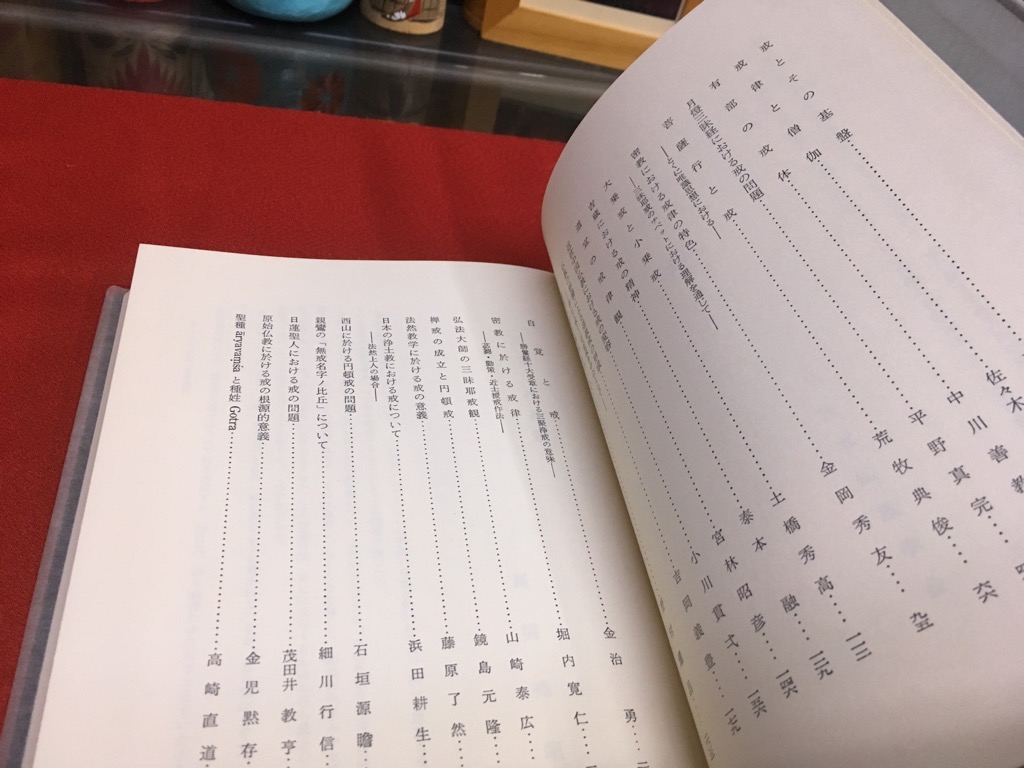 戒とその基盤……佐々木教
戒律と僧伽……中川善
有部の戒体……平野真完
月燈三昧経における戒の問題……荒牧典俊……六六
菩薩行と戒……金岡秀友……九五
――とくに唯識思想における――
密教における戒律の特色……土橋秀高……一一三
――三昧耶戒のチベットにおける理解を通して――
大乗戒と小乗戒……泰本融……一二九
吉蔵における戒の精神……宮林昭彦……一四六
道宣の戒律観……小川貫弌……一五六
吉岡義豊……一七九
自覚と戒……金治勇
――勝鬘経十大受章における三聚浄戒の意味――
密教に於ける戒律……堀内寛仁
弘法大師の三昧耶戒観……山崎泰広
禅戒の成立と円頓戒……鏡島元隆
法然教学に於ける戒の意義……藤原了然
日本の浄土教における戒について……浜田耕生
――法然上人の場合――
西山に於ける円頓戒の問題……石垣源瞻
親鸞の「無戒名字ノ比丘」について……細川行信
日蓮聖人における戒の問題……茂田井教亨
原始仏教に於ける戒の根源的意義……金児黙存
聖種 āryavaṃśa と種姓 Gotra……高崎直道